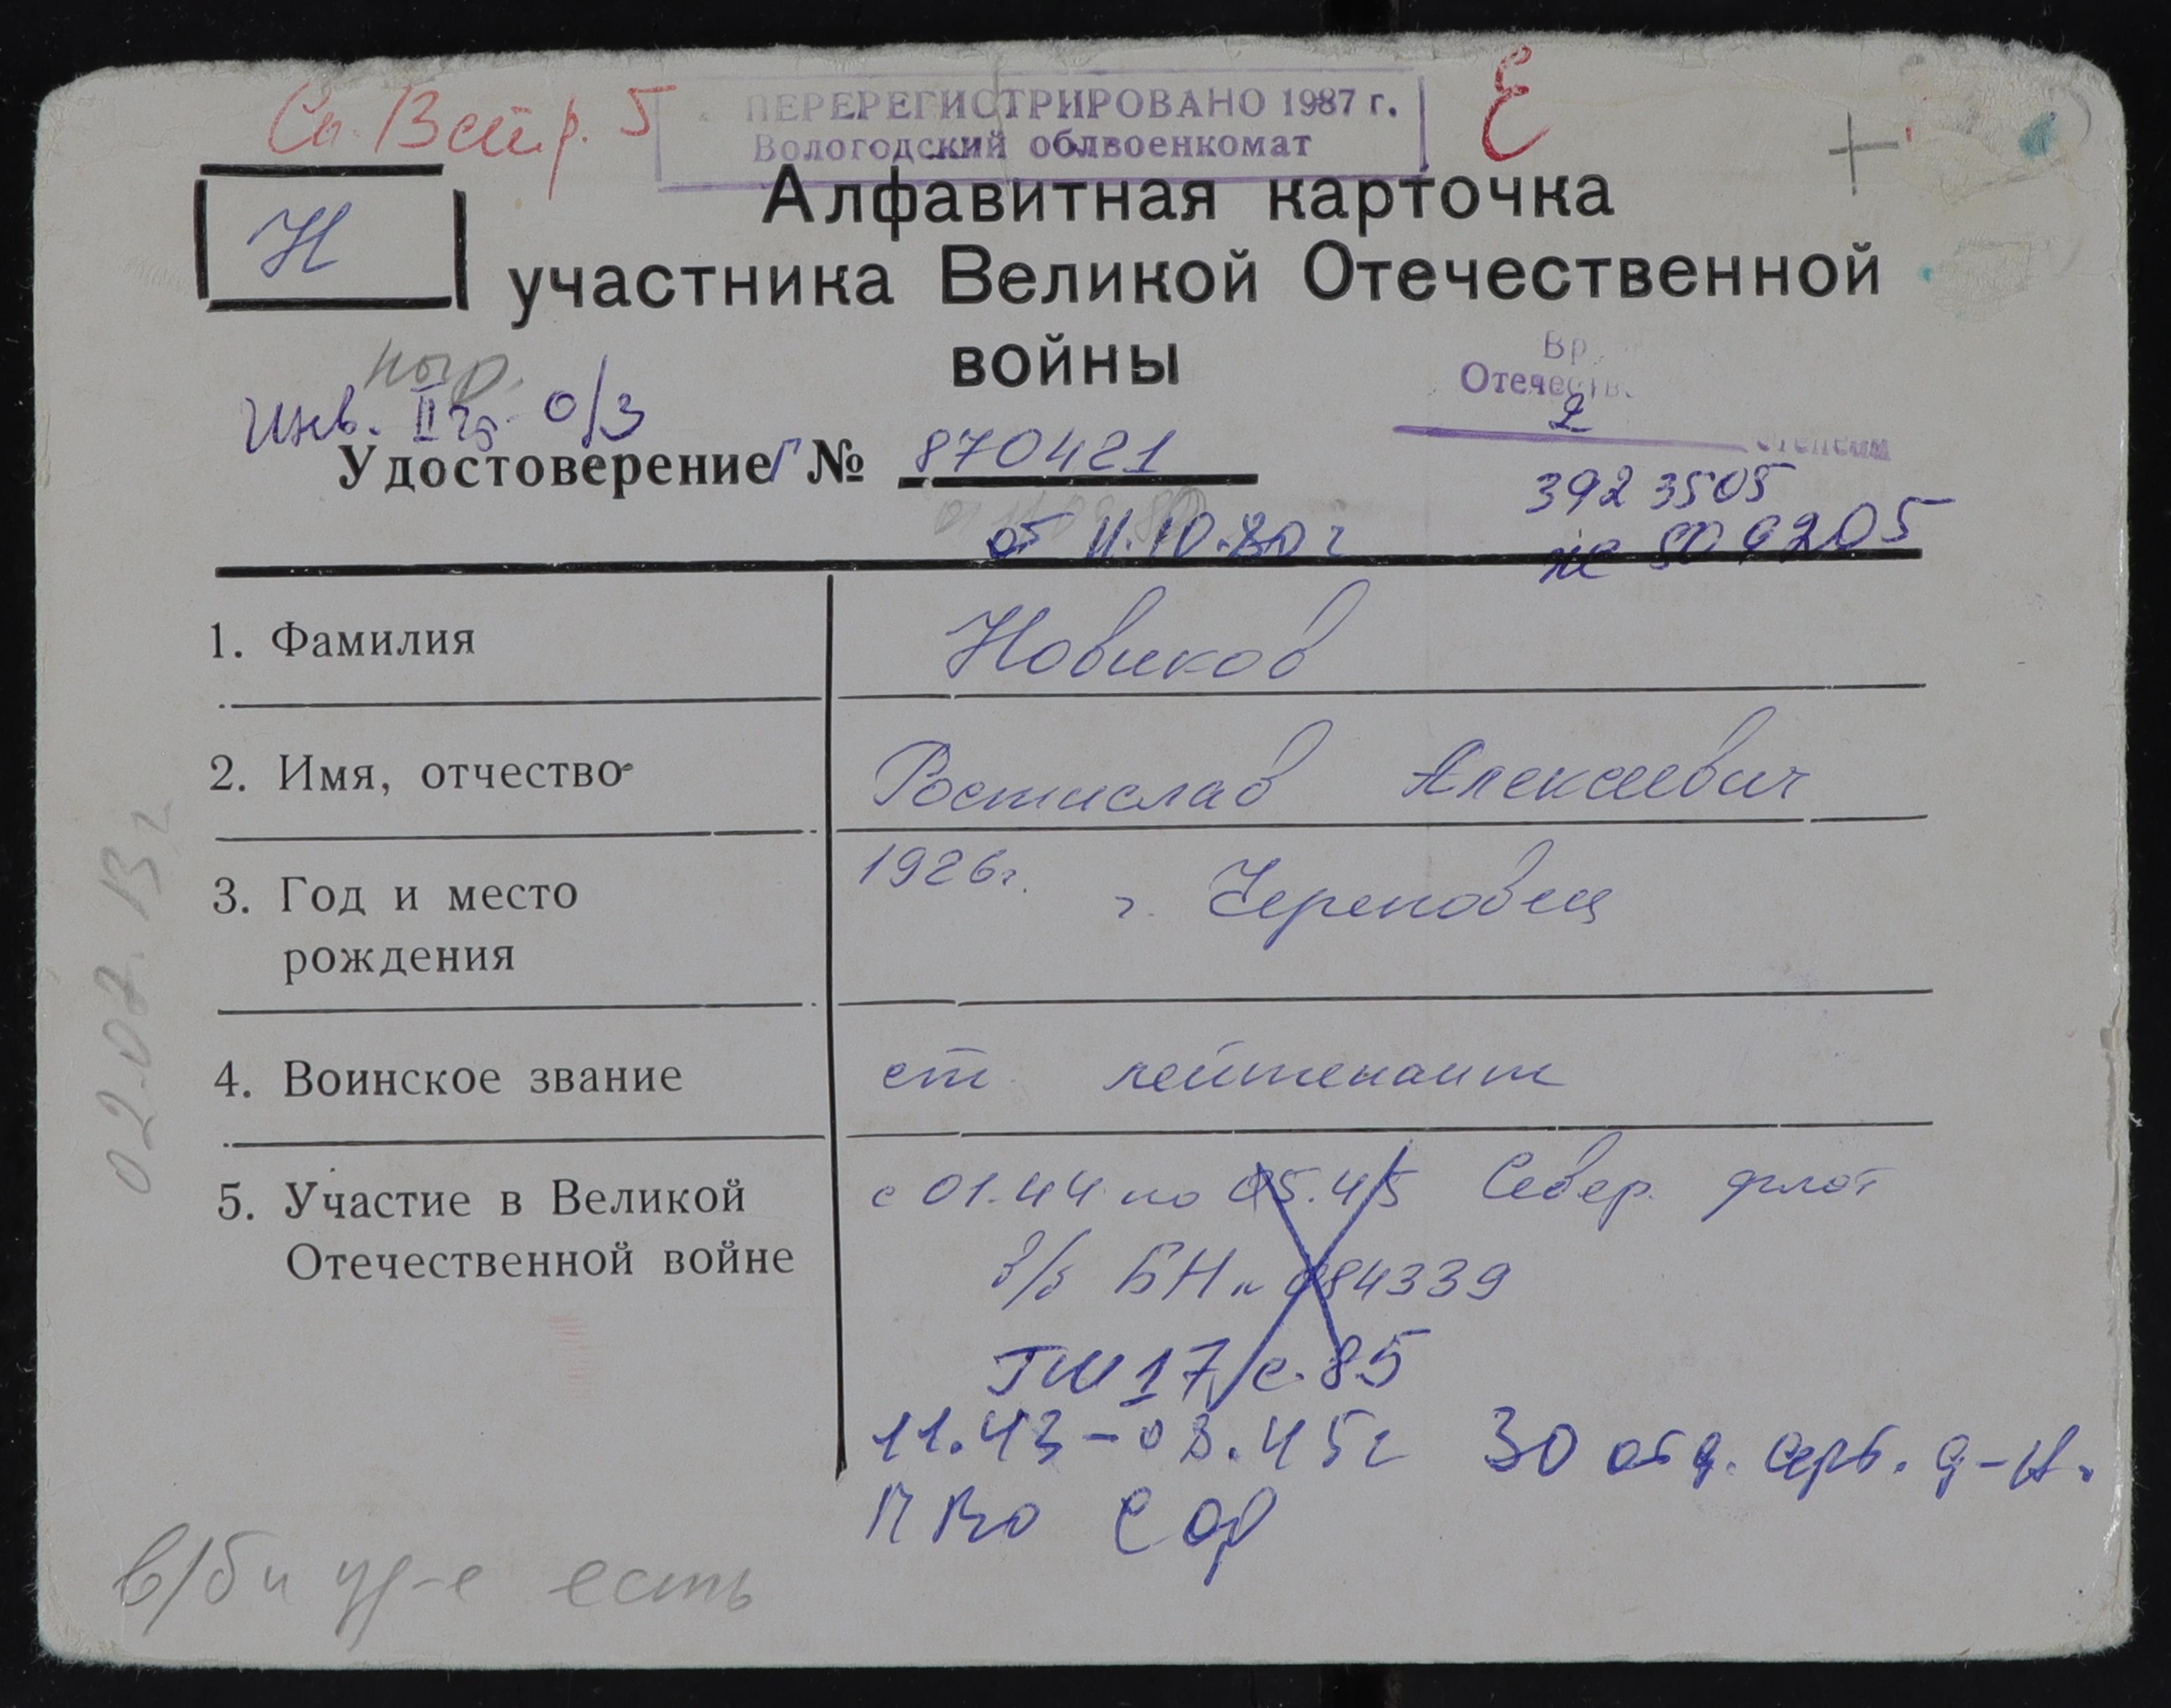 ПЕРЕРЕГИСТРИРОВАНО 1987 г.
Вологодский облвоенкомат
Н
Алфавитная карточка
участника Великой Отечественной
войны
Отечеств.
2
степени
Инв. II гр. о/з
Удостоверение Г № 870421
от 11.10.80 г
392 3505
1. Фамилия Новиков
2. Имя, отчество Ростислав Алексеевич
3. Год и место рождения 1926г. г. Череповец
4. Воинское звание ст лейтенант
5. Участие в Великой Отечественной войне с 01.44 по 05.45 Север. флот
в/б БН № 084339
ГШ 17/с. 85
11.43-03.45г 30 отд. серб. д-н.
ПВО СФ
в/б и уд-е есть
02.07.13 г